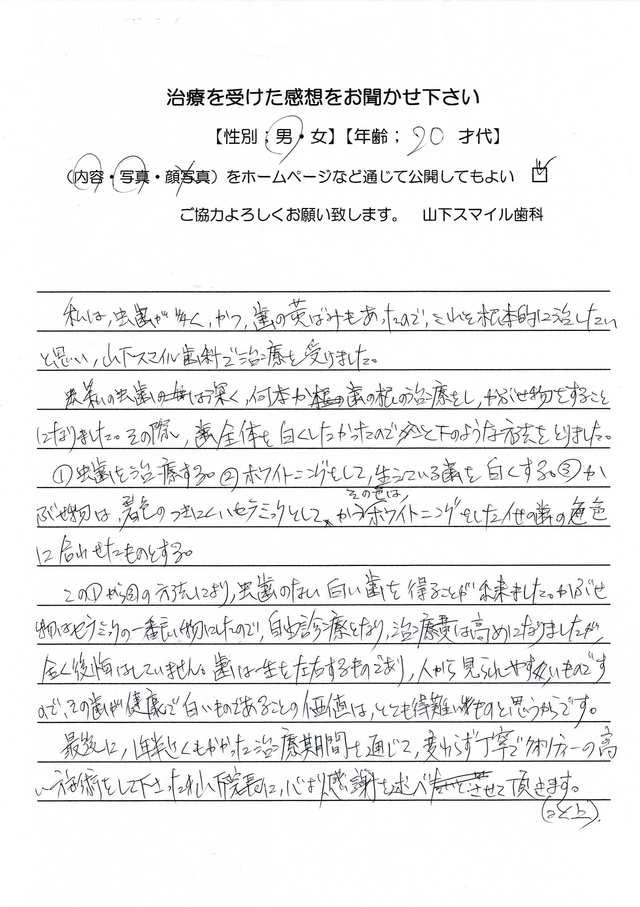 治療を受けた感想をお聞かせ下さい
【性別；男・女】【年齢；20才代】
（内容・写真・顔写真）をホームページなど通じて公開してもよい ☑
ご協力よろしくお願い致します。 山下スマイル歯科
私は、虫歯が多く、かつ、歯の黄ばみもあったので、これを根本的に治したい
と思い、山下スマイル歯科で治療を受けました。
私の虫歯は深く、何本か歯の根の治療をし、かぶせ物をすること
になりました。その際、歯全体を白くしたかったので以下のような方法をとりました。
①虫歯を治療する。②ホワイトニングをして、生えている歯を白くする。③か
ぶせ物は、着色のつきにくいセラミックとして、
その色は、
ホワイトニングをした他の歯の色
に合わせたものとする。
この①から③の方法により、虫歯のない白い歯を得ることが出来ました。かぶせ
物はセラミックの一番良い物にしたので、自由診療となり、治療費は高めになりましたが、
全く後悔はしていません。歯は一生を左右するものであり、人から見られやすいものです
ので、その歯が健康で白いものであることの価値は、とても得難いものと思うからです。
最後に、1年半近くもかかった治療期間を通じて、変わらず丁寧でクオリティーの高
い施術をして下さった山下院長に、心より感謝を述べさせて頂きます。
（以上）